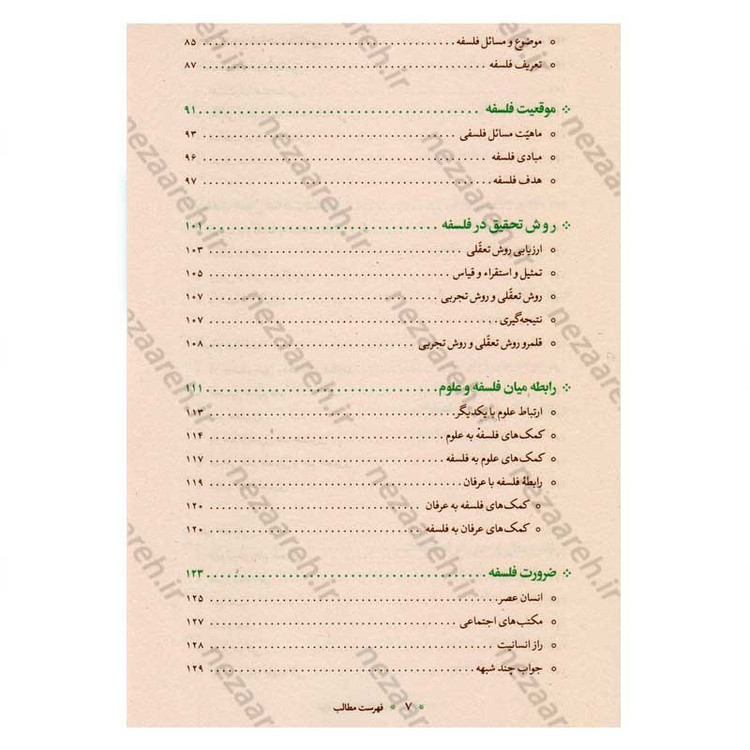 موضوع و مسائل فلسفه ۸۵
تعریف فلسفه ۸۷
موقعیت فلسفه ۹۱
ماهیّت مسائل فلسفی ۹۳
مبادی فلسفه ۹۶
هدف فلسفه ۹۷
روش تحقیق در فلسفه ۱۰۱
ارزیابی روش تعقّلی ۱۰۳
تمثیل و استقراء و قیاس ۱۰۵
روش تعقّلی و روش تجربی ۱۰۷
نتیجه‌گیری ۱۰۷
قلمرو روش تعقّلی و روش تجربی ۱۰۸
رابطه میان فلسفه و علوم ۱۱۱
ارتباط علوم با یکدیگر ۱۱۳
کمک‌های فلسفه به علوم ۱۱۴
کمک‌های علوم به فلسفه ۱۱۷
رابطهٔ فلسفه با عرفان ۱۱۹
کمک‌های فلسفه به عرفان ۱۲۰
کمک‌های عرفان به فلسفه ۱۲۰
ضرورت فلسفه ۱۲۳
انسان عصر ۱۲۵
مکتب‌های اجتماعی ۱۲۷
راز انسانیت ۱۲۸
جواب چند شبهه ۱۲۹
۷ * فهرست مطالب
nezaareh.ir